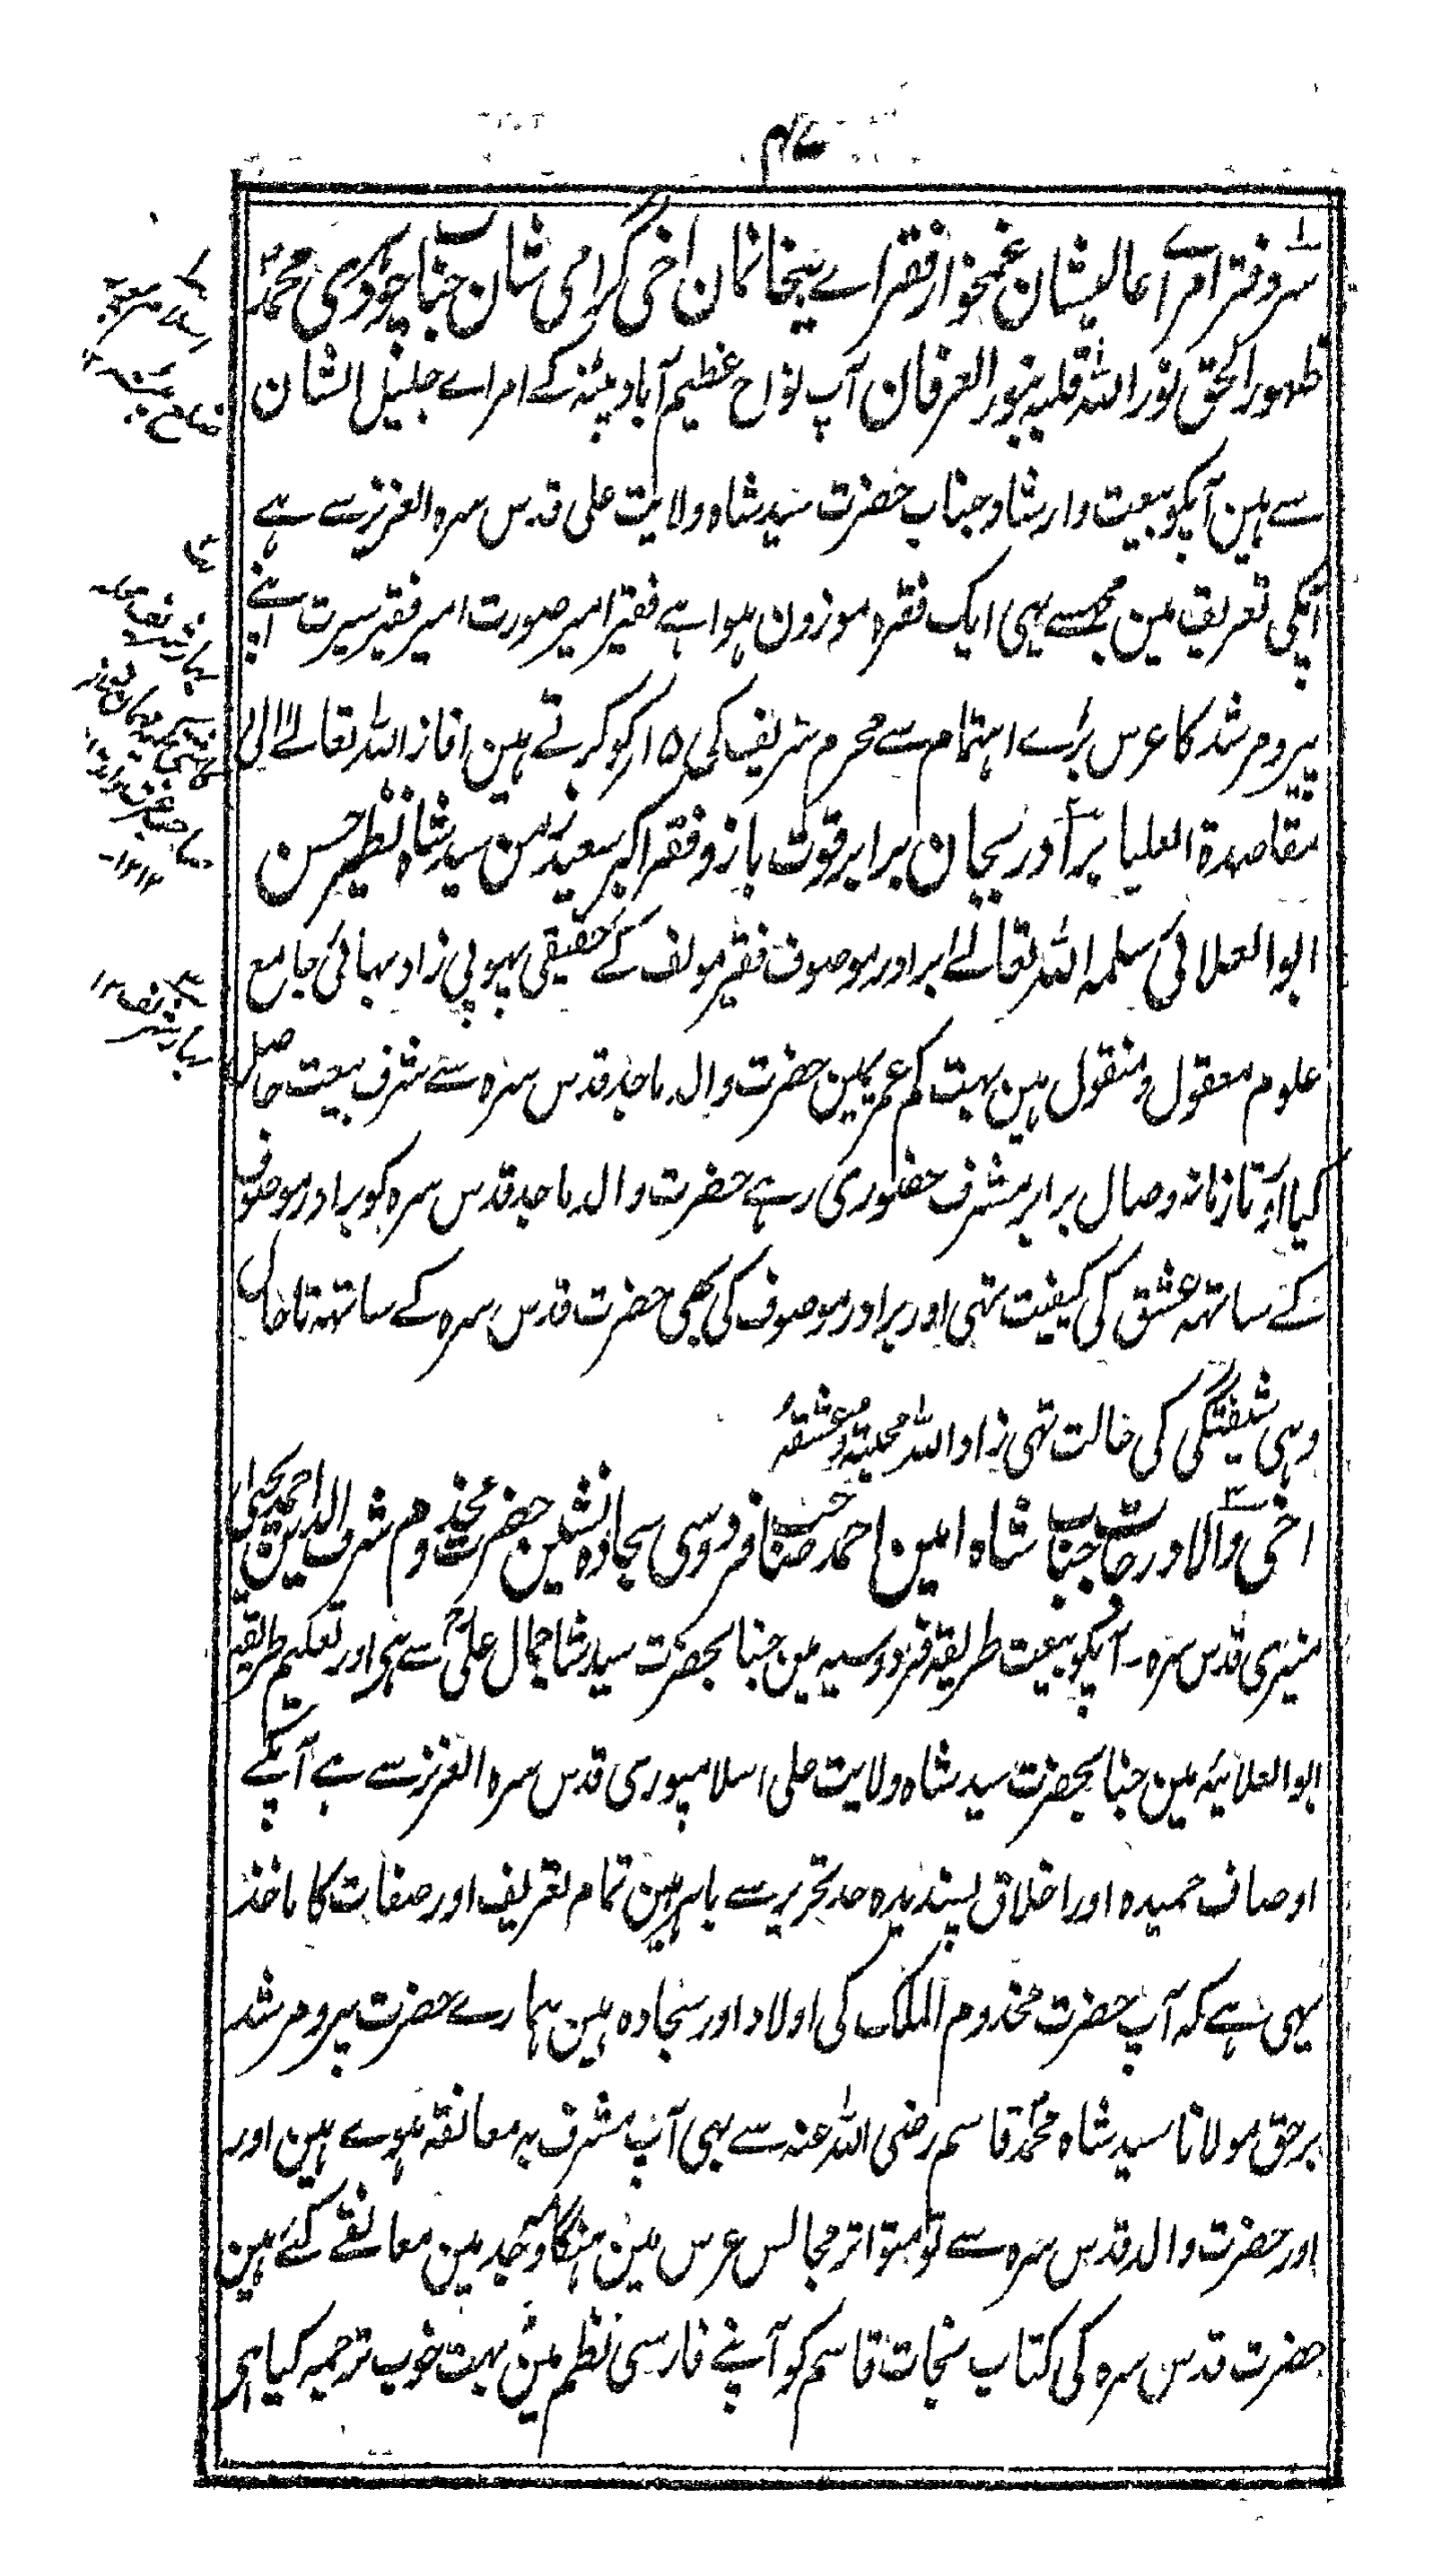 سر دفتر امراے عالیشان غمخوار فقراے بیخانمان اخی گرامی شان جناب چودہری محمد
ظہور الحق نور اللہ قلبہ بنور العرفان آپ نواح عظیم آباد پٹنہ کے امراے جلیل الشان
سے ہین آپکو بیعت و ارشاد جناب حضرت سید شاہ ولایت علی قدس سرہ العزیز سے ہے
آپکی تعریف مین مجھسے یہی ایک فقرہ موزون ہوا ہے فقیر امیر صورت امیر فقیر سیرت اپنے
پیر و مرشد کا عرس بڑے اہتمام سے محرم شریف کی ۱۵ ار کو کرتے ہین افاز اللہ تعالے الی
مقاصدہ العلیا برادر بجان برابر قوت بازو فقہ اکبر سعید زمن سید شاہ نظیر حسن
ابو العلائی سلمہ اللہ تعالے برادر موصوف فقیر مولف کے حقیقی پھوپی زاد بھائی جامع
علوم معقول و منقول ہین بہت کم عمر یمین حضرت والد ماجد قدس سرہ سے شرف بیعت حاصل
کیا اور تا زمانہ وصال برابر مشرف حضوری رہے حضرت والد ماجد قدس سرہ کو برادر موصوف
کے ساتھہ عشق کی کیفیت تہی اور برادر موصوف کی بھی حضرت قدس سرہ کے ساتھہ تا حال
وہی شیفتگی کی حالت تہی زاد اللہ محبتہ و عشقہ
اخی والا درجات جناب شاہ امین احمد صاحب فردوسی سجادہ نشین حضرت مخدوم شرف الدین احمد یحیی
منیری قدس سرہ ۔ آپکو بیعت طریقہ فردوسیہ مین جناب حضرت سید شاہ جمال علی سے ہی اور تعلیم طریقہ
ابو العلائیہ مین جناب حضرت سید شاہ ولایت علی اسلامپوری قدس سرہ العزیز سے ہے آپکے
اوصاف حمیدہ اور اخلاق پسندیدہ حد تحریر سے باہر ہین تمام تعریف اور صفات کا ماخذ
یہی ہے کہ آپ حضرت مخدوم الملک کی اولاد اور سجادہ ہین ہمارے حضرت پیر و مرشد
برحق مولانا سید شاہ محمد قاسم رضی اللہ عنہ سے بہی آپ مشرف بہ معانقہ ہوے ہین اور
اور حضرت والد قدس سرہ سے تو متواتر مجالس عرس مین ہنگام وجد مین معانقے کئے ہین
حضرت قدس سرہ کی کتاب نجات قاسم کو آپنے فارسی نظم مین بہت خوب ترجمہ کیا ہی